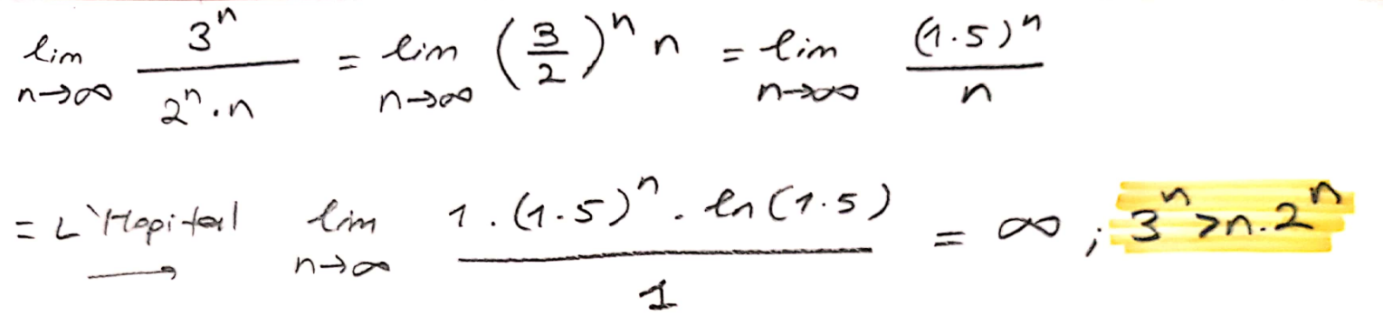 lim n→∞ 3^n / (2^n · n) = lim n→∞ (3/2)^n n = lim n→∞ (1.5)^n / n
= L`Hopital → lim n→∞ (1 · (1.5)^n · ln(1.5)) / 1 = ∞ ; 3^n > n · 2^n